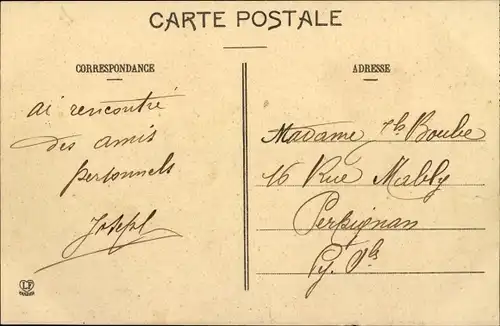 CARTE POSTALE
CORRESPONDANCE
ADRESSE
ai rencontré
des amis
personnels
Joseph
Madame Jh Boube
16 Rue Mably
Perpignan
Py. Ols
LF